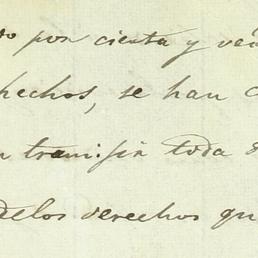 to por cierta y ve
hechos, se han
transijir toda
delos derechos qu